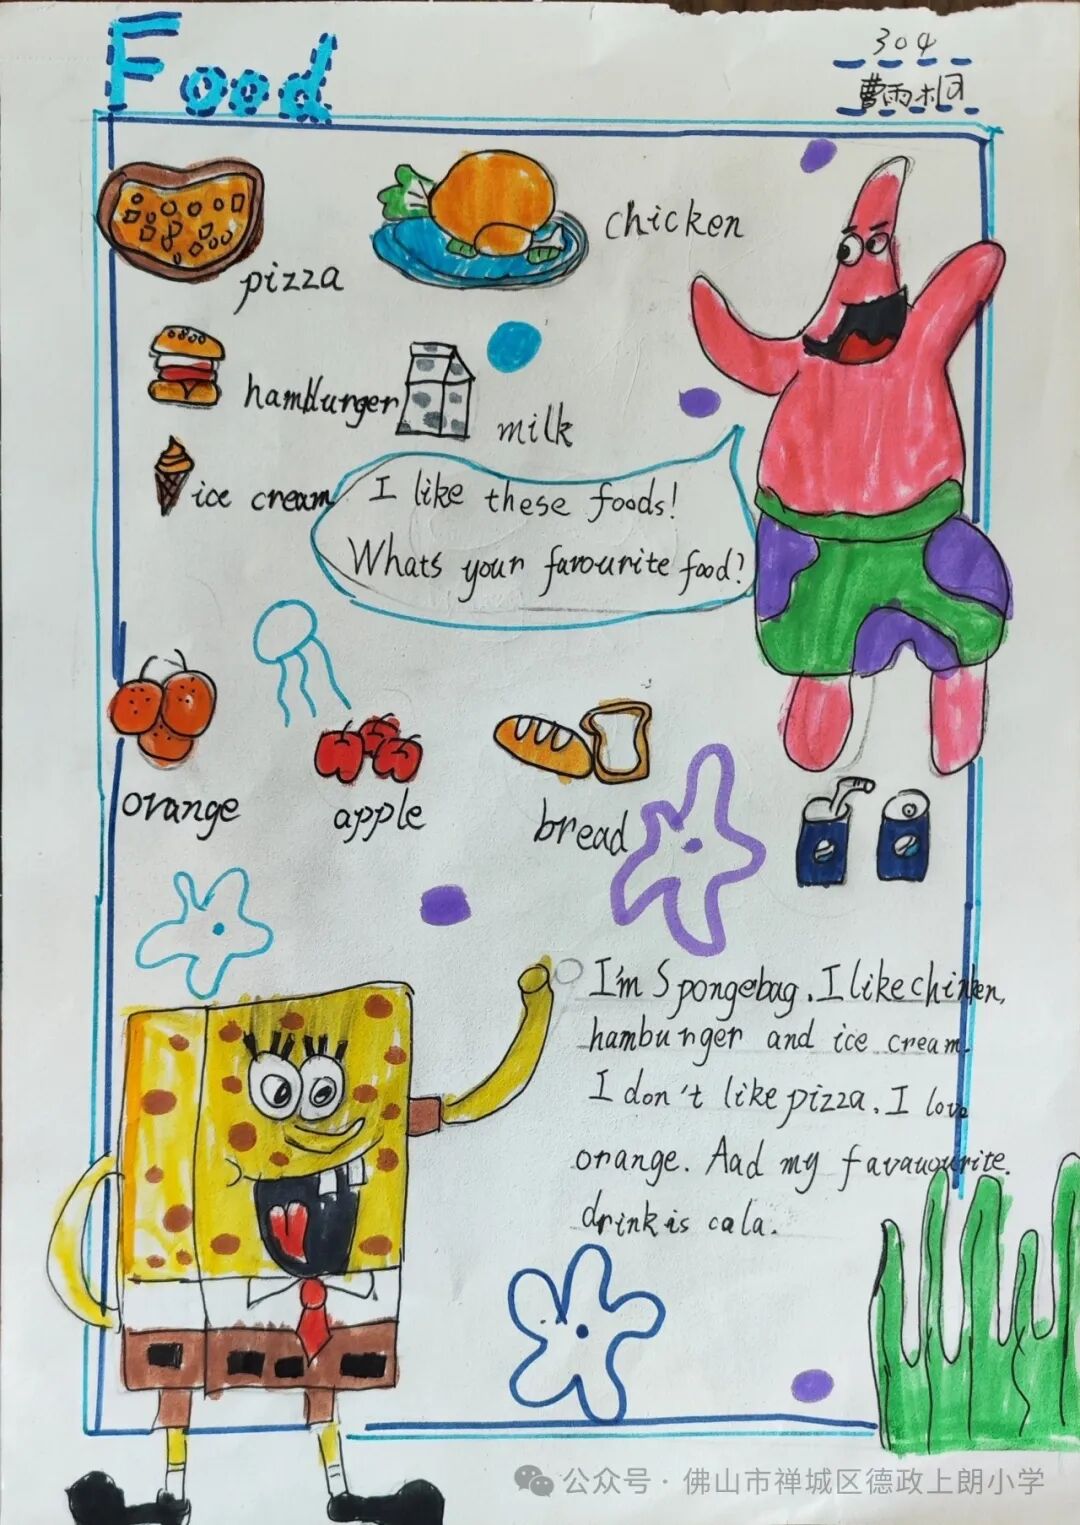 Food
304
曹雨桐
pizza
chicken
hamburger
milk
ice cream
I like these foods!
Whats your favourite food?
orange
apple
bread
I'm Spongebag. I like chinken,
hamburger and ice cream.
I don't like pizza. I love
orange. Aad my favauourite.
drink is cala.
公众号·佛山市禅城区德政上朗小学